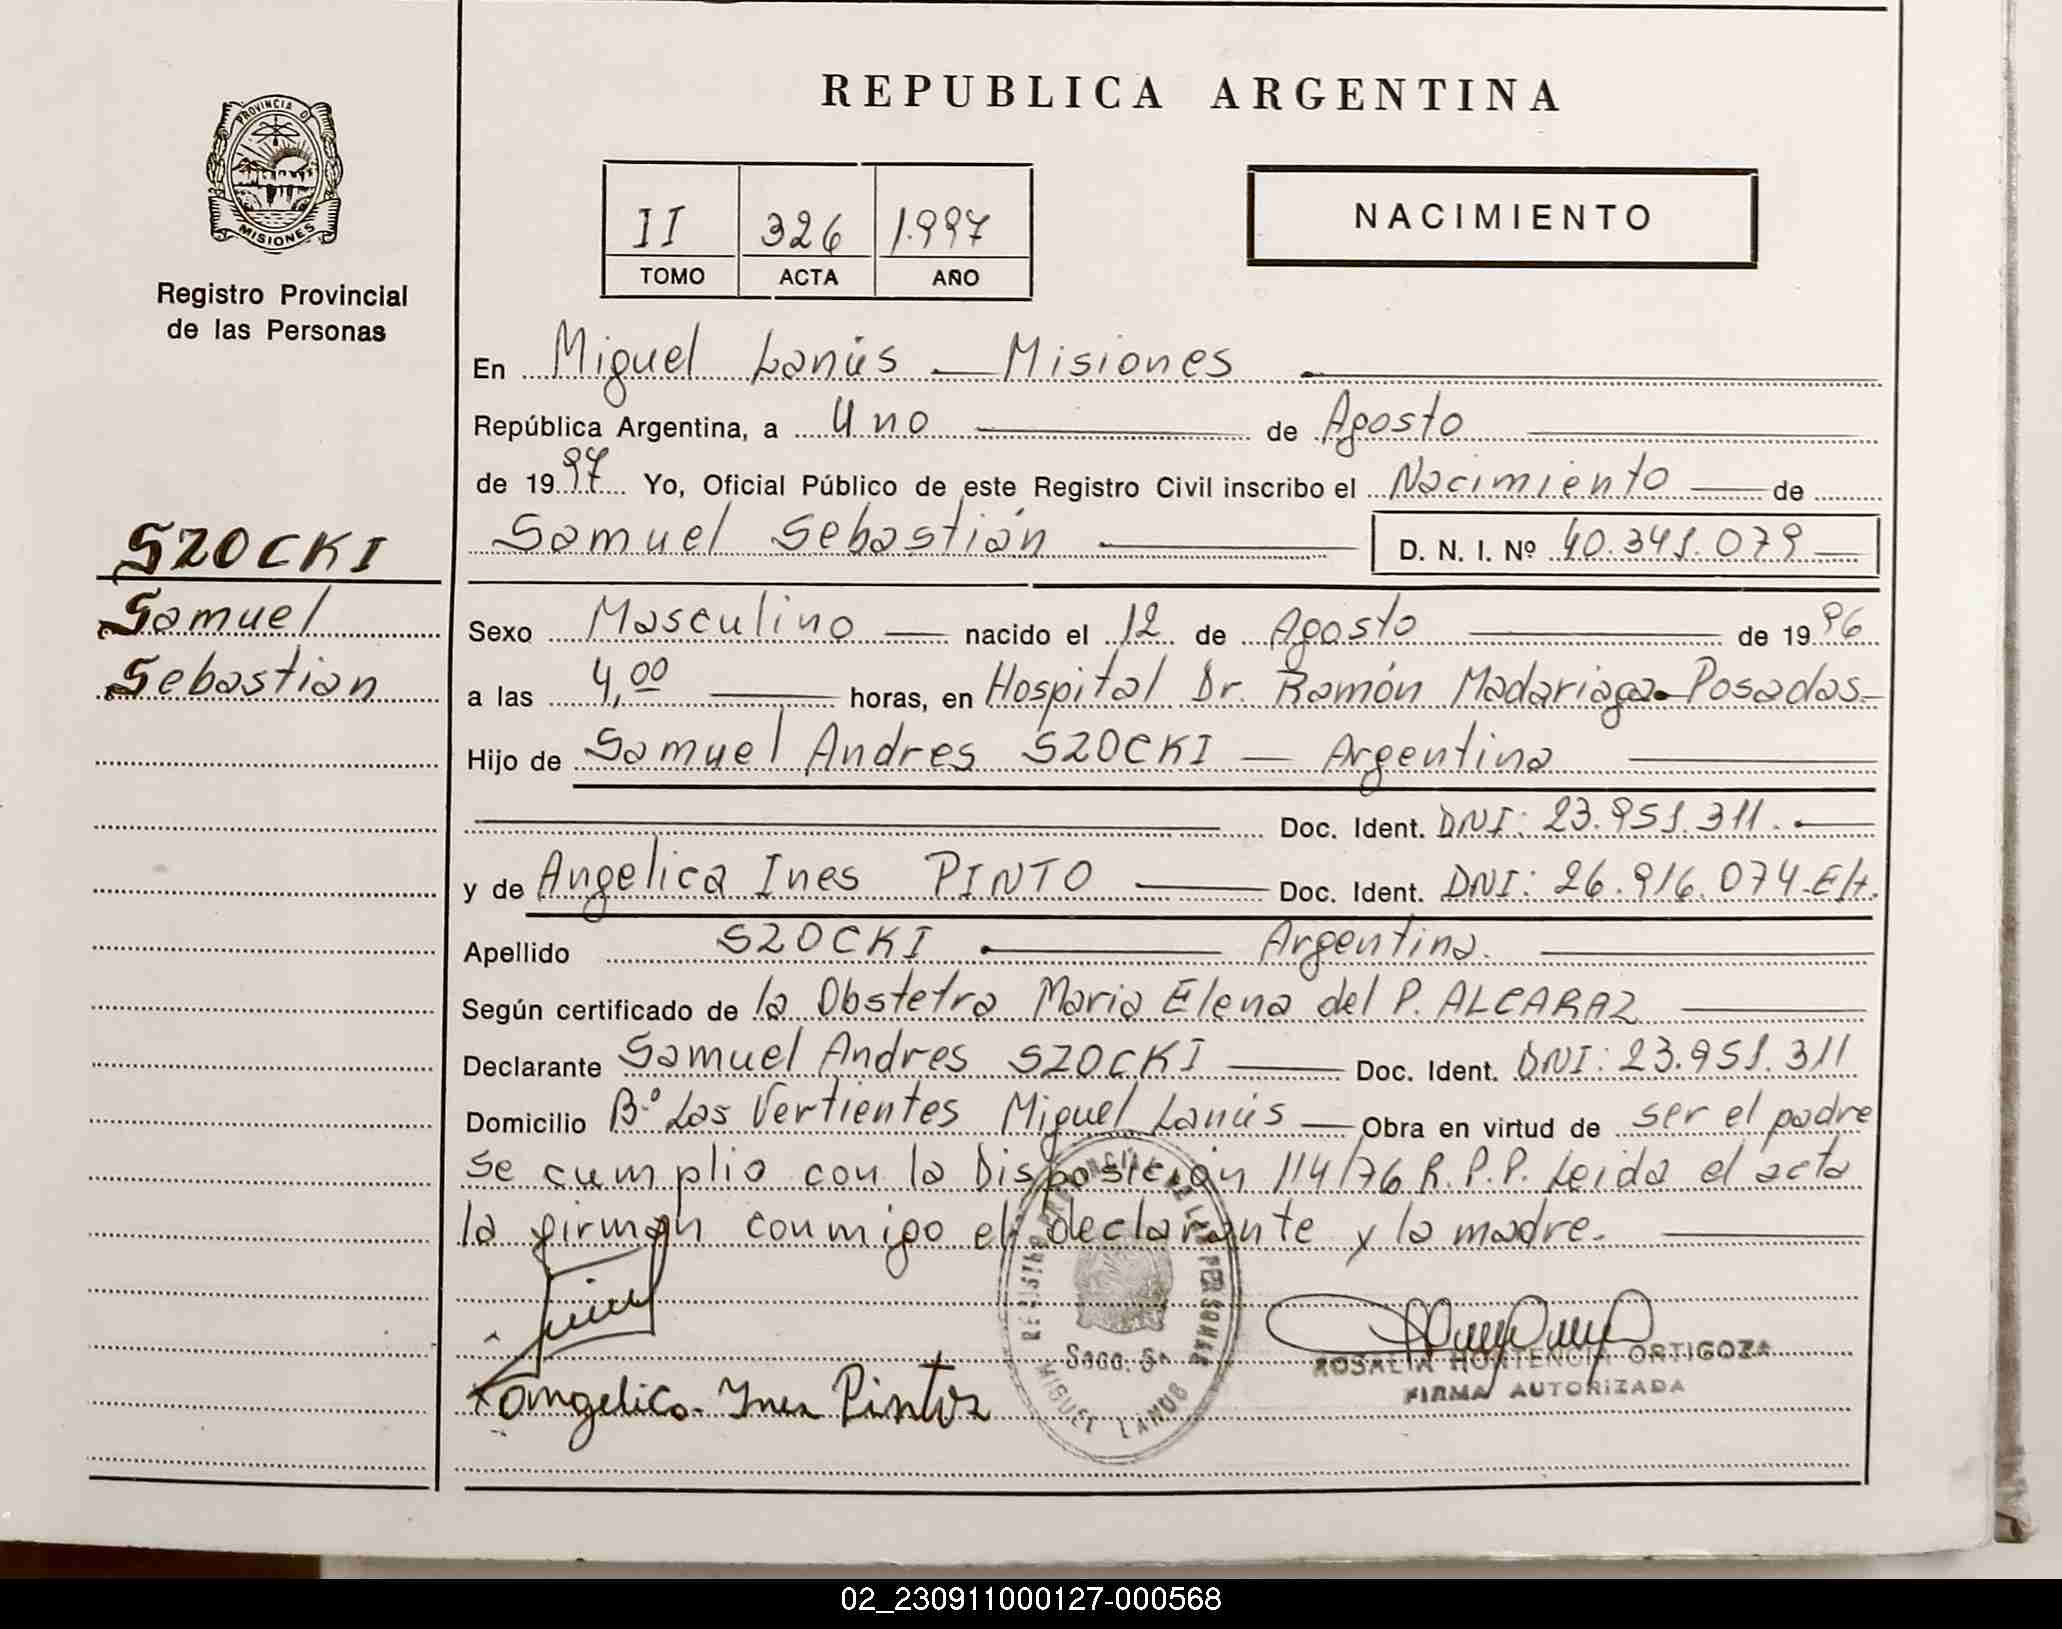 PROVINCIA D
MISIONES
Registro Provincial
de las Personas
SZOCKI
Samuel
Sebastian
REPUBLICA ARGENTINA
II 326 1.997
TOMO ACTA AÑO
NACIMIENTO
En Miguel Lanús — Misiones
República Argentina, a Uno de Agosto
de 1997 Yo, Oficial Público de este Registro Civil inscribo el Nacimiento de
Samuel Sebastián D. N. I. Nº 40.341.079
Sexo Masculino nacido el 12 de Agosto de 1996
a las 4,00 horas, en Hospital Dr. Ramón Madariaga - Posadas.
Hijo de Samuel Andres SZOCKI — Argentina
Doc. Ident. DNI: 23.951.311.
y de Angelica Ines PINTO Doc. Ident. DNI: 26.916.074
Apellido SZOCKI Argentina.
Según certificado de la Obstetra Maria Elena del P. ALCARAZ
Declarante Samuel Andres SZOCKI Doc. Ident. DNI: 23.951.311
Domicilio Bº Las Vertientes Miguel Lanús — Obra en virtud de ser el padre
se cumplio con la Disposición 114/76 R.P.P. Leida el acta
la firman conmigo el declarante y la madre.
angelica Ines Pinto
REGISTRO PROVINCIAL DE LAS PERSONAS
MIGUEL LANUS
ROSALIA HORTENCIA ORTIGOZA
FIRMA AUTORIZADA
02_230911000127-000568